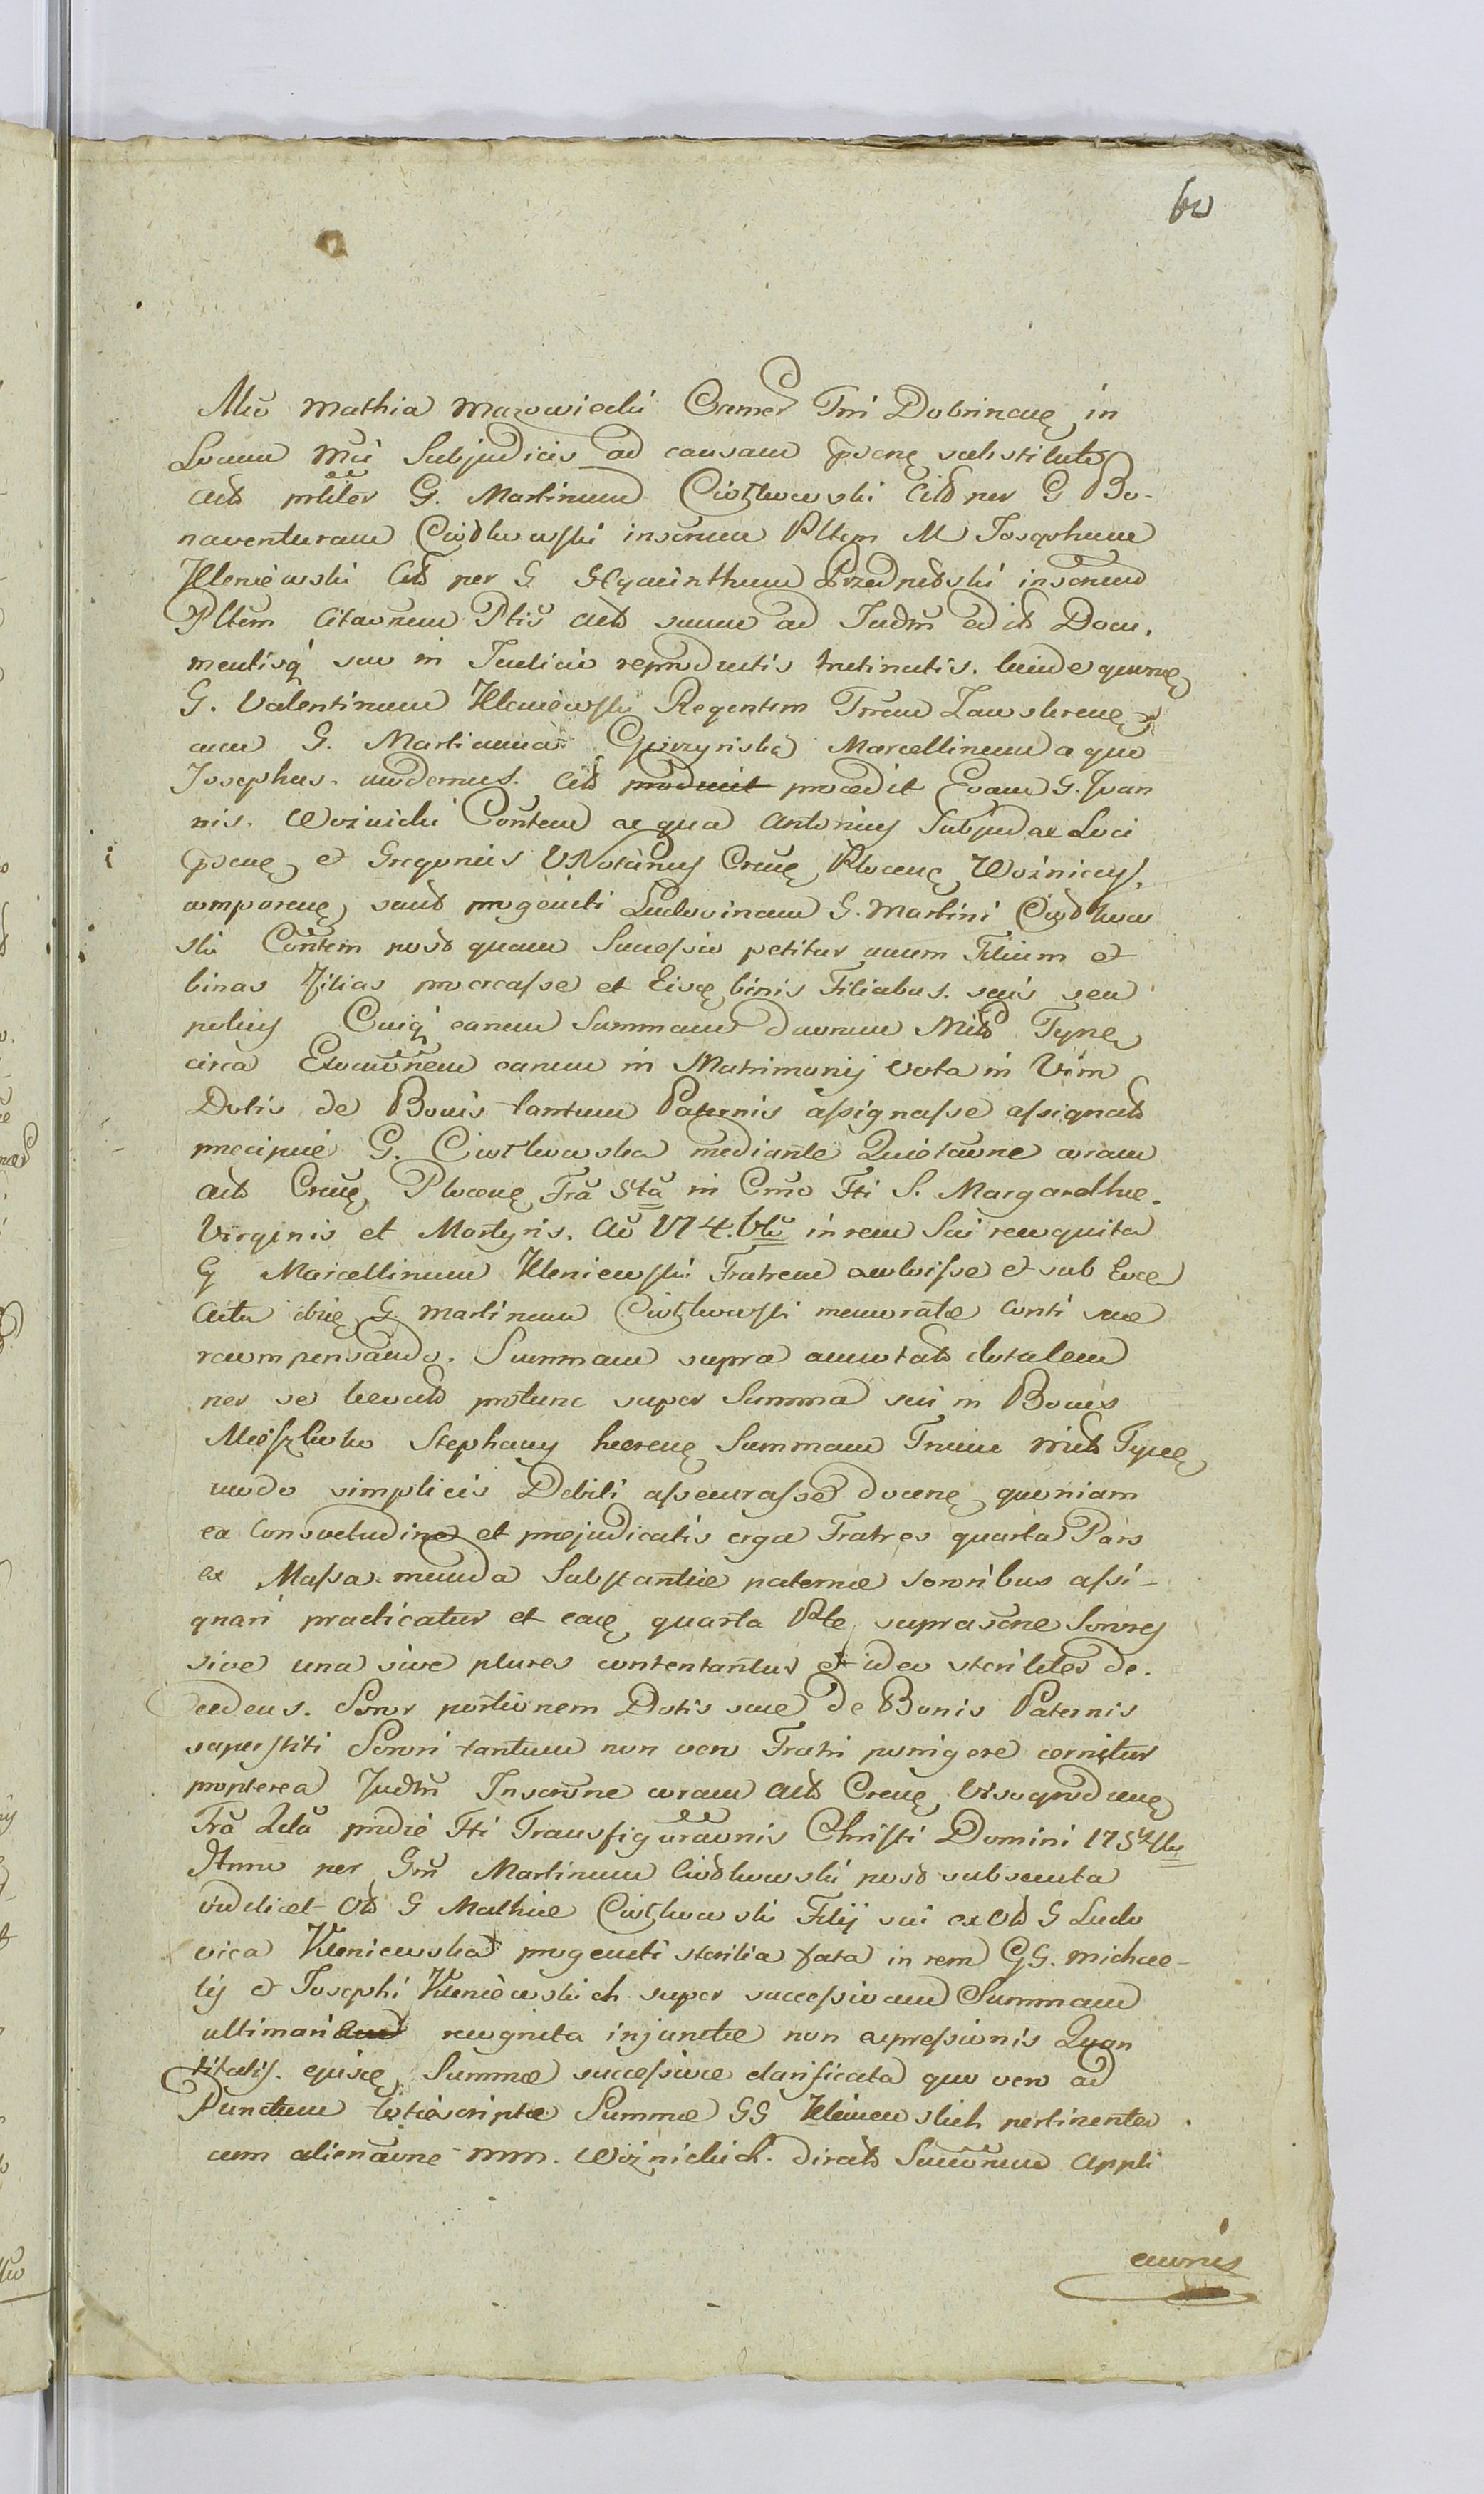 60
Mco Mathia Mazowiecki Camer Trri Dobrinene, in
Locum Mci Subjudicis ad causam psene substituto
Actt prliter G. Martinum Ciołkowski Citt per G Bo-
naventuram Ciołkowski inscnum Pltem M Josephum
Kleniewski Citt per G Hyacinthum Przedpełski inscnum
Pltem Citaonum Ptis actt suum ad Judm edittt Docu.
mentisq suo in Judicio reproductis trutinatis. Unde quonę
G. Valentinum Kleniewski Regentem Trrem Zawskrenę
cum G. Marianna Gorzyńska Marcellinum a quo
Josephus modernus Citt produit procedit Evam G. Joan
nis. Woznicki Contem ex qua Antonius Subjudex Loci
psenę et Gregorius VNotarius Crenę Plocenę Woźniccy,
comparenę sautt progeniti Ludovicam G. Martini Ciołkow
ski Contem post quam Successio petitur unum Filium et
binas Filias procreasse et Eisdę binis Filiabus suis seu
potius Cuiq earum Summam duorum Mitt Typnę
circa Elocaonem earum in Matrimonij vota in Vim
Dotis de Bonis tantum Paternis assignasse assignatt
praecipue G. Ciołkowska mediante Quietaone coram
actt Crenę Plocenę Fra Sta in Crno Fti S. Margarethae.
Virginis et Martyris. Ao 174. blo in rem Sui recognita
G Marcellinum Kleniewski Fratrem exolvisse et sub Eodę
Actu die G Martinum Ciołkowski memoratae Conti suae
recompensando. Summam supra annotatt dotalem
per se levatt protunc super Summa sui in Bonis
Stephany haerenę Summam Trium Mitt Typnę
modo simplicis Debiti assecurasse docenę quoniam
ex Consvetudine et praejudicatis erga Fratres quarta Pars
ex Massa munda Substantiae paternae sororibus assi-
gnari practicatur et eadę quarta Pte suprascne Sorores
sive una sive plures contentantur et ideo steriliter de.
cedens. Soror portionem Dotis suae de Bonis Paternis
superstiti Sorori tantum non vero Fratri porrigere cernitur
propterea Judm Inscrone coram actt Crenę Visogrodenę
Fra 2da pridie Fti Transfiguraonis Christi Domini 1752sbu
Anno per Grm Martinum Ciołkowski post subsecuta
videlicet Ott G Mathiae Ciołkowski Filij sui ex Ott G Ludo
vica Kleniewska progeniti sterilia fata in rem GG. Michae-
lis et Josephi Kleniewskich super successivam Summam
ultimari recognita injunctae non expressionis Quan
titatis. ejusdę Summae successivae clarificata quo vero ad
Punctum totiescriptae Summae GG Kleniewskich pertinenter
cum alienaone MM. Woznickich. diratt Sucorum Appli
caonis